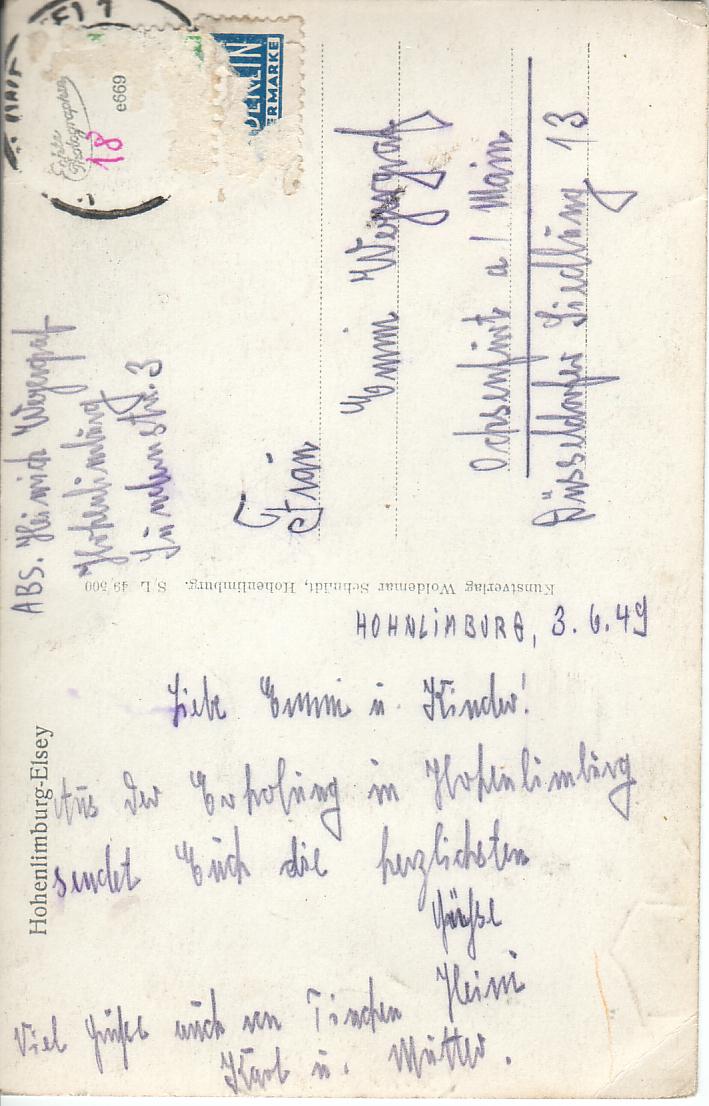 Echte
Photographie
e669
18
BERLIN
ERMARKE
ABS. Heinrich Wegergraf
Hohenlimburg
str. 3
Frau
Emmi Wegergraf
Ochsenfurt a/Main
Düsseldorfer Siedlung 13
Kunstverlag Woldemar Schmidt, Hohenlimburg. S/L 49 500
Hohenlimburg-Elsey
HOHNLIMBURG, 3.6.49
Liebe Emmi u. Kinder!
Aus der Erholung in Hohenlimburg
sendet Euch die herzlichsten
Grüße
Heini
Viel Grüße auch von Tinchen
Karl u. Mutter.